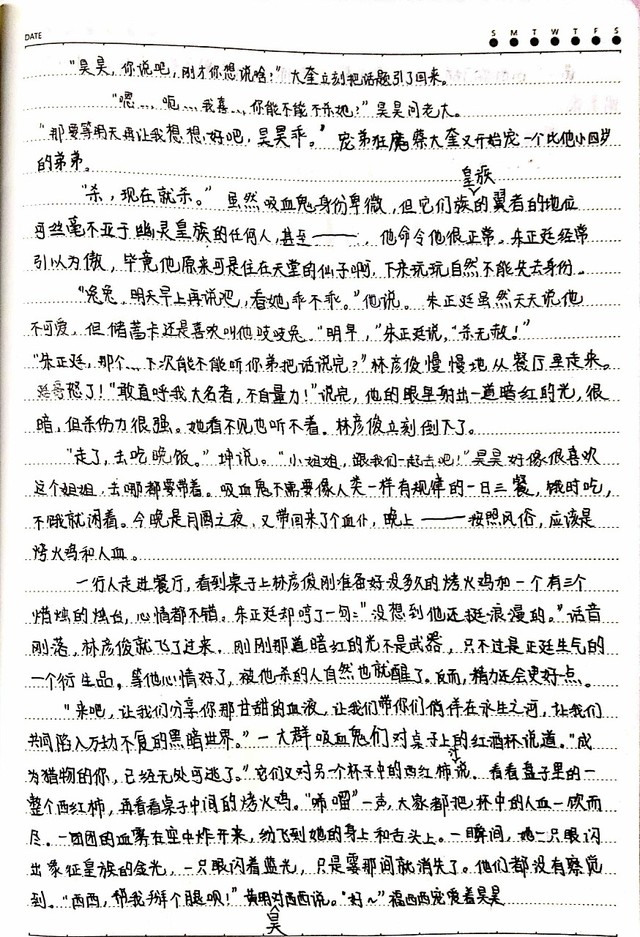 DATE
S M T W T F S
“昊昊，你说吧，刚才你想说啥？”大奎立刻把话题引了回来。
“嗯…、呃…、我喜…、你能不能不杀她？”昊昊问老大。
“那要等明天再让我想想，好吧，昊昊乖。”宠弟狂魔蔡大奎又开始宠一个比他小四岁
的弟弟。
“杀，现在就杀。”虽然吸血鬼身份卑微，但它们族的皇族翼者的地位
可丝毫不亚于幽灵皇族的任何人，甚至——，他命令他很正常。朱正廷经常
引以为傲，毕竟他原来可是住在天堂的仙子啊，下来玩玩自然不能失去身份。
“兔兔，明天早上再说吧，看她乖不乖。”他说。朱正廷虽然天天说他
不可爱，但储蓄卡还是喜欢叫他吱吱兔。“明早，”朱正廷说，“杀无赦！”
“朱正廷，那个…下次能不能听你弟把话说完？”林彦俊慢慢地从餐厅里走来。
廷哥怒了！“敢直呼我大名者，不自量力！”说完，他的眼里射出一道暗红的光，很
暗，但杀伤力很强。她看不见也听不着。林彦俊立刻倒下了。
“走了，去吃晚饭。”坤说。“小姐姐，跟我们一起去吧！”昊昊好像很喜欢
这个姐姐，去哪都要带着。吸血鬼不需要像人类一样有规律的一日三餐，饿时吃，
不饿就闲着。今晚是月圆之夜，又带回来了个血仆，晚上——按照风俗，应该是
烤火鸡和人血。
一行人走进餐厅，看到桌子上林彦俊刚准备好没多久的烤火鸡和一个有三个
蜡烛的烛台，心情都不错。朱正廷却哼了一句：“没想到他还挺浪漫的。”话音
刚落，林彦俊就飞了过来，刚刚那道暗红的光不是武器，只不过是正廷生气的
一个衍生品，等他心情好了，被他杀的人自然也就醒了。反而，精力还会更好点。
“来吧，让我们分享你那甘甜的血液，让我们带你们徜徉在永生之河，让我们
共同陷入万劫不复的黑暗世界。”一大群吸血鬼们对桌子上的红酒杯说道。“成
为猎物的你，已经无处可逃了。”它们又对另一个杯子中的西红柿汁说。看看盘子里的一
整个西红柿，再看看桌子中间的烤火鸡。“唏嚁”一声，大家都把杯中的人血一饮而
尽。一团团的血雾在空中炸开来，纷飞到她的身上和舌头上。一瞬间，她一只眼闪
出象征皇族的金光，一只眼闪着蓝光，只是霎那间就消失了。他们都没有察觉
到。“西西，帮我掰个腿呗！”黄明昊对西西说。“好~”福西西宠爱着昊昊